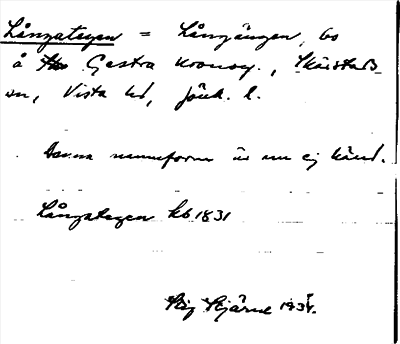 Långategen = Långängen, bo
å Gestra kronoj., Skärstad
sn, Vista hd, Jönk. l.
Denna namnform är nu ej känd.
Långategen kb 1831
Stig Stjärne